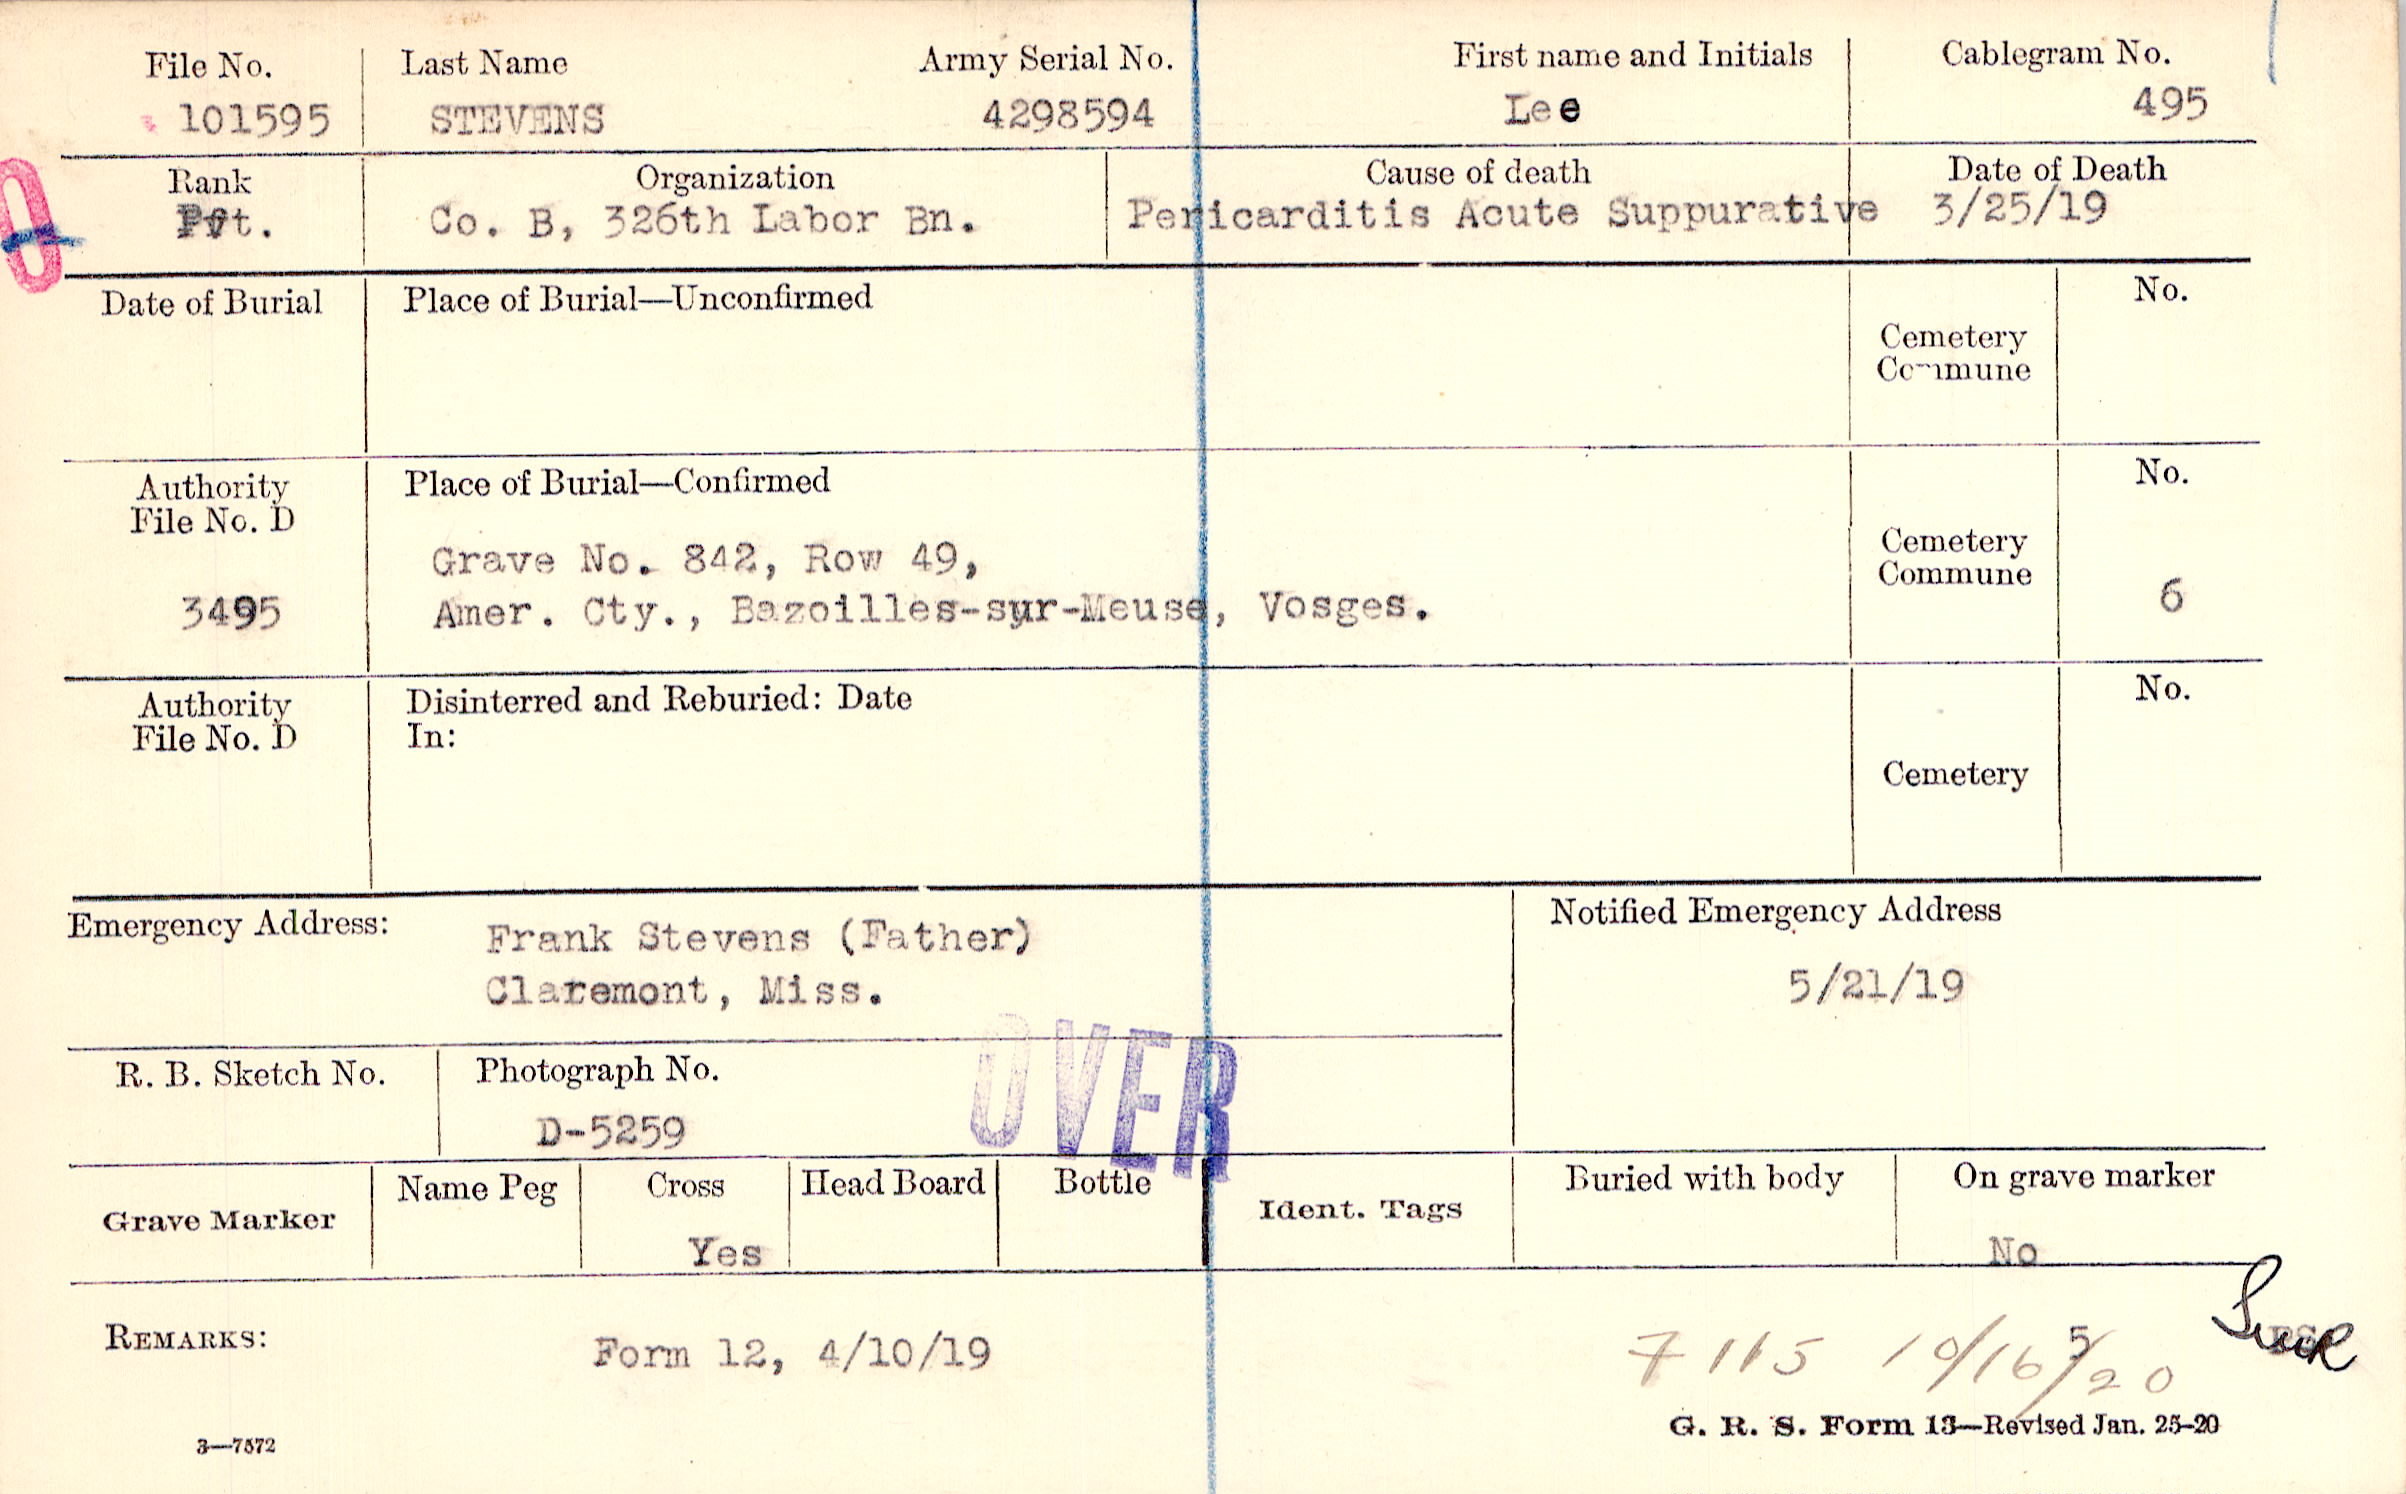 File No. Last Name Army Serial No. First name and Initials Cablegram No.
101595 STEVENS 4298594 Lee 495
Rank Organization Cause of death Date of Death
Pvt. Co. B, 326th Labor Bn. Pericarditis Acute Suppurative 3/25/19
Date of Burial Place of Burial—Unconfirmed No.
Cemetery
Commune
Authority Place of Burial—Confirmed No.
File No. D
Grave No. 842, Row 49, Cemetery
Commune
3495 Amer. Cty., Bazoilles-sur-Meuse, Vosges. 6
Authority Disinterred and Reburied: Date No.
File No. D In:
Cemetery
Emergency Address: Frank Stevens (Father) Notified Emergency Address
Claremont, Miss. 5/21/19
OVER
R. B. Sketch No. Photograph No.
D-5259
Grave Marker Name Peg Cross Head Board Bottle Ident. Tags Buried with body On grave marker
Yes No
REMARKS: Form 12, 4/10/19 7115 10/16/20 5
3—7572 G. R. S. Form 13—Revised Jan. 25-20